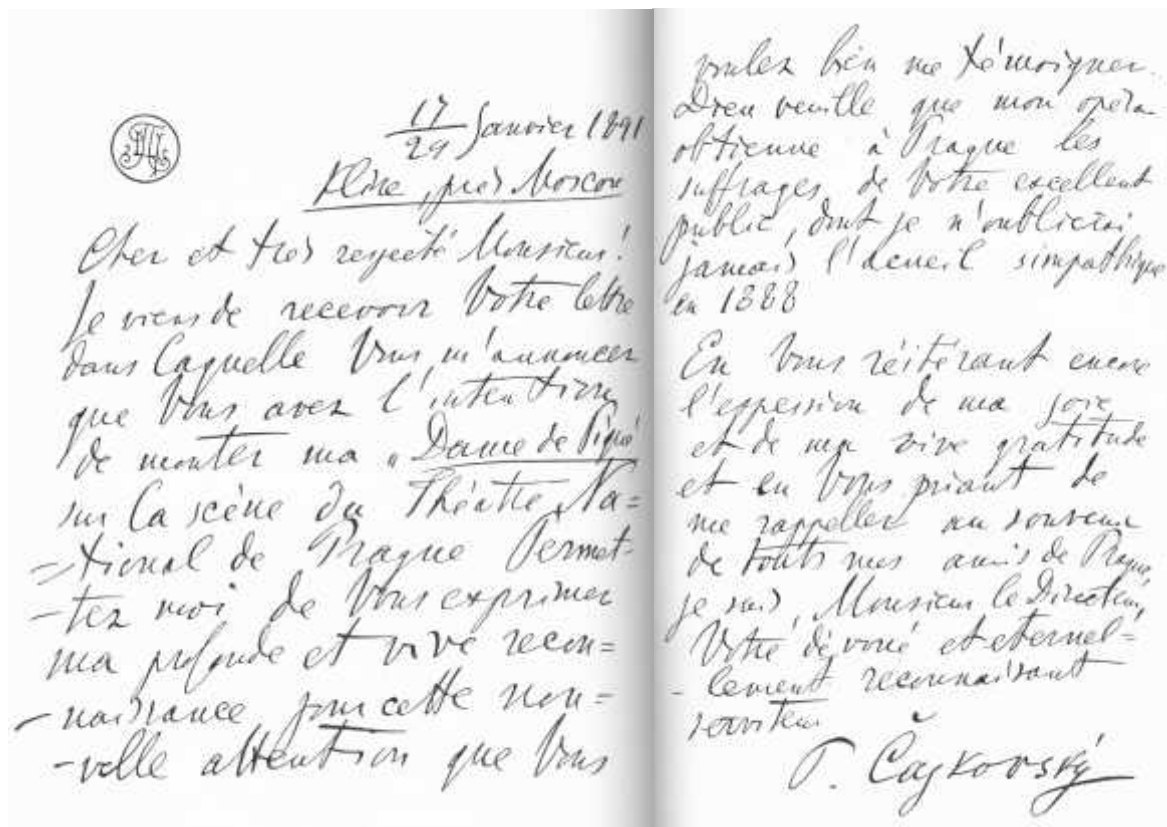 17/29 Janvier 1891
Kline, près Moscou
Cher et très respecté Monsieur!
Je viens de recevoir Votre lettre
dans laquelle Vous m'annoncez
que Vous avez l'intention
de monter ma „Dame de Pique"
sur la scène du Théâtre Na=
=tional de Prague Permet-
-tez moi de Vous exprimer
ma profonde et vive recon=
-naissance pour cette nou=
-velle attention que Vous
voulez bien me témoigner.
Dieu veuille que mon opéra
obtienne à Prague les
suffrages de Votre excellent
public, dont je n'oublierai
jamais l'acueil simpathique
en 1888
En Vous réitérant encore
l'expession de ma joie
et de ma vive gratitude
et en Vous priant de
me rappeller au souvenir
de touts mes amis de Prague,
je suis, Monsieur le Directeur,
Votre dévoué et eternel=
-lement reconnaissant
serviteur
P. Čajkovský